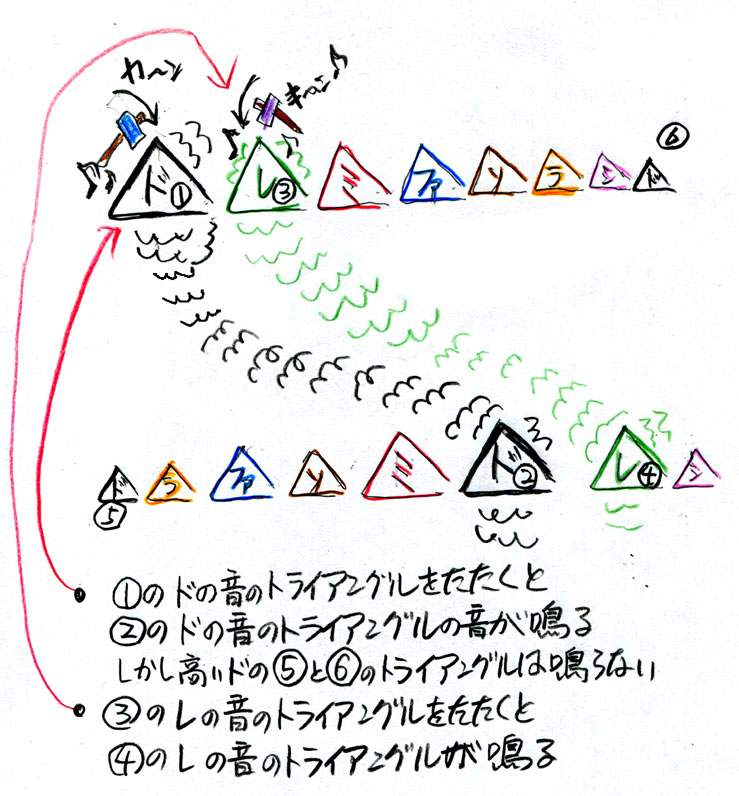 カ〜ン
キ〜ン♪
⑥
ド① レ③ ミ ファ ソ ラ シ ド
ド ラ ファ ソ ミ ド② レ④ シ
⑤
①のドの音のトライアングルをたたくと
②のドの音のトライアングルの音が鳴る
しかし高いドの⑤と⑥のトライアングルは鳴らない
③のレの音のトライアングルをたたくと
④のレの音のトライアングルが鳴る